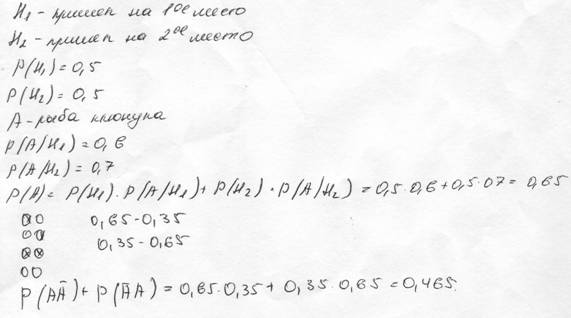 H₁ - пришел на 1ое место
H₂ - пришел на 2ое место
P(H₁) = 0,5
P(H₂) = 0,5
A - рыба клюнула
P(A/H₁) = 0,6
P(A/H₂) = 0,7
P(A) = P(H₁) · P(A/H₁) + P(H₂) · P(A/H₂) = 0,5 · 0,6 + 0,5 · 07 = 0,65
0,65 - 0,35
0,35 - 0,65
P(AĀ) + P(ĀA) = 0,65 · 0,35 + 0,35 · 0,65 = 0,465.